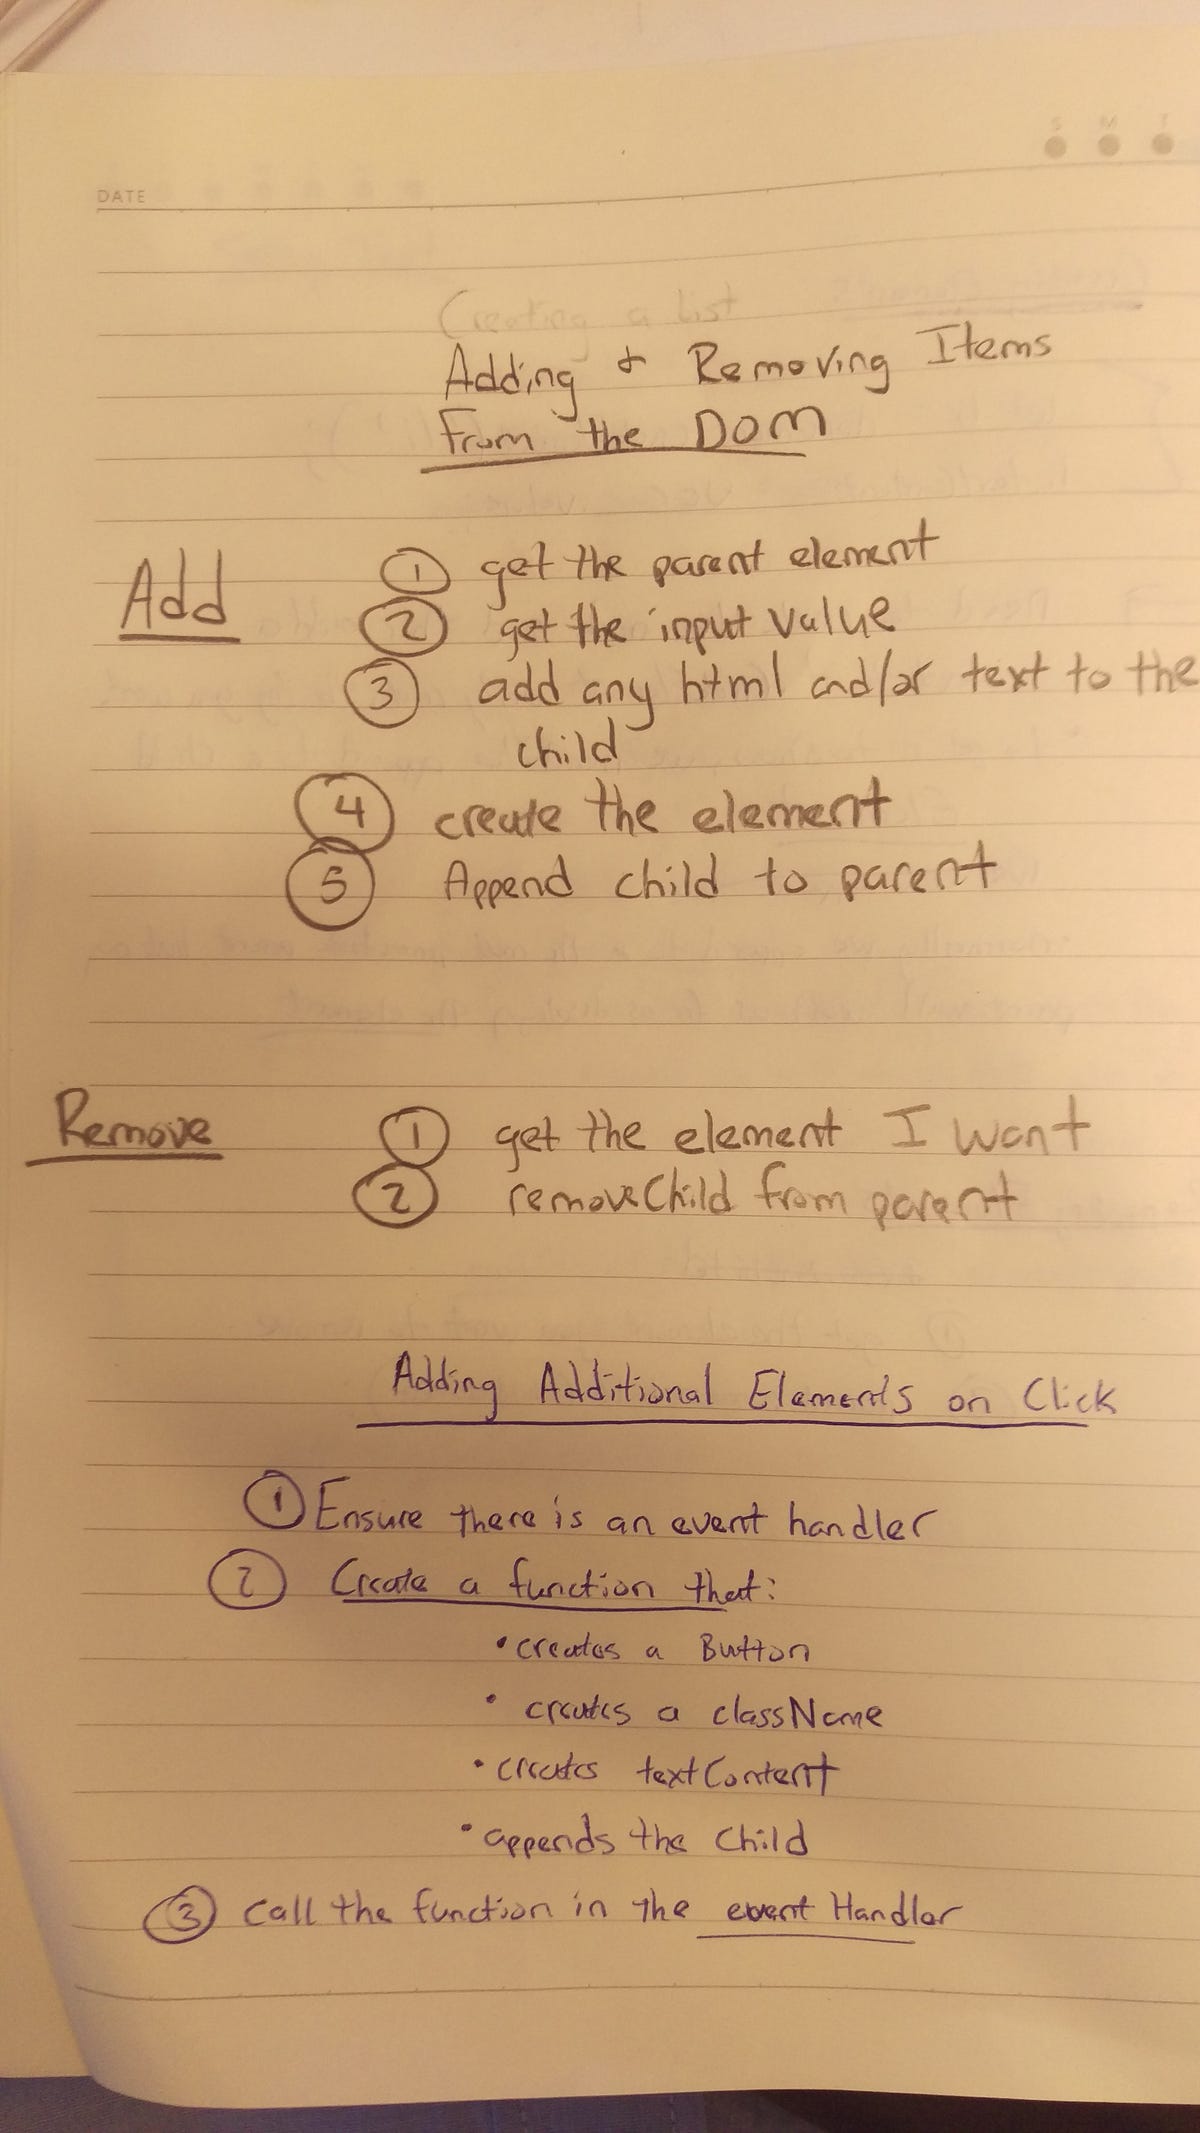 S M T
DATE
Creating a list
Adding & Removing Items
From the DOM
Add
① get the parent element
② get the input value
③ add any html and/or text to the
child
④ create the element
⑤ Append child to parent
Remove
① get the element I want
② removeChild from parent
Adding Additional Elements on Click
① Ensure there is an event handler
② Create a function that:
• creates a Button
• creates a className
• creates textContent
• appends the Child
③ call the function in the event Handler